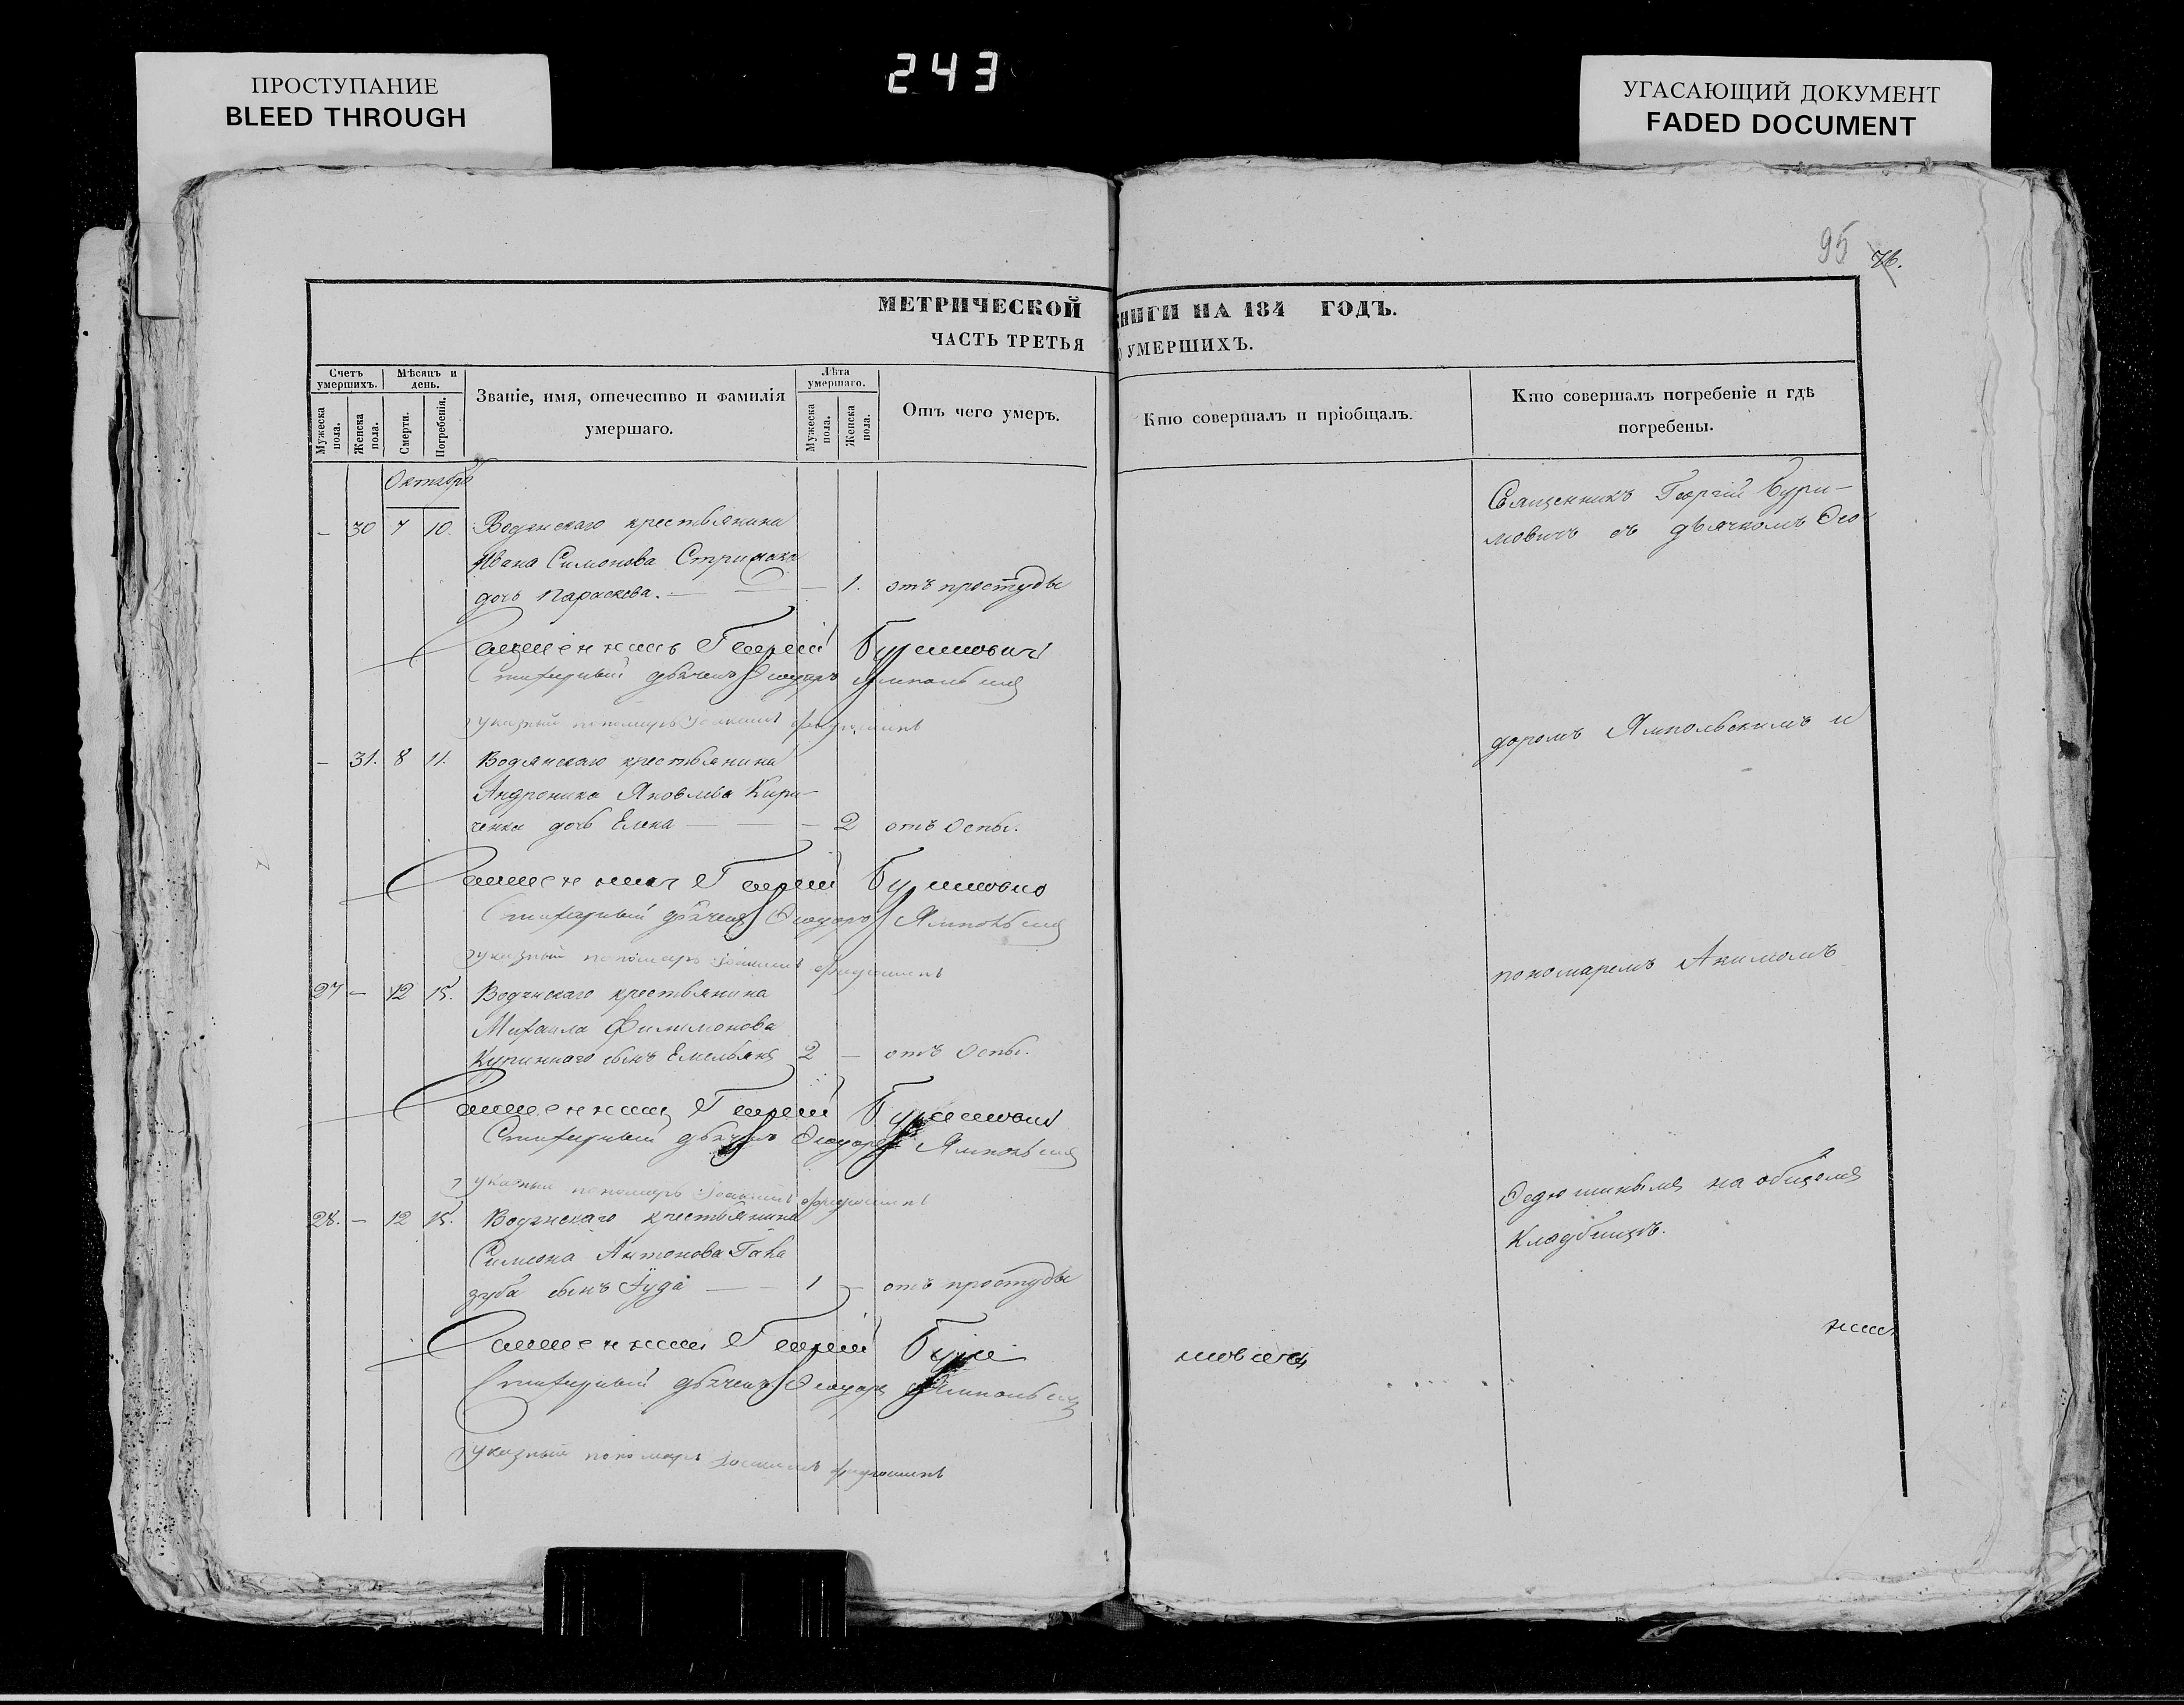 243
ПРОСТУПАНИЕ
BLEED THROUGH
УГАСАЮЩИЙ ДОКУМЕНТ
FADED DOCUMENT
95 76.
МЕТРИЧЕСКОЙ КНИГИ НА 184 ГОДЪ.
ЧАСТЬ ТРЕТЬЯ О УМЕРШИХЪ.
Счетъ умершихъ.
Мужеска пола.
Женска пола.
Мѣсяцъ и день.
Смерти.
Погребенія.
Званіе, имя, отечество и фамилія
умершаго.
Лѣта умершаго.
Мужеска пола.
Женска пола.
Отъ чего умеръ.
Кто совершалъ и пріобщалъ.
Кто совершалъ погребеніе и гдѣ
погребены.
Октября
– 30 7 10. Водянскаго крестьянина
Ивана Симонова
дочь Параскева. – 1. отъ простуды
Священникъ Георгій Буримовичъ
Стихарный дьячекъ Ѳеодоръ Ямпольскій
указный пономарь Іоакимъ Федюшинъ
– 31. 8 11. Водянскаго крестьянина
Андроника Яковлева Кири-
ченка дочь Елена – 2 отъ оспы.
Священникъ Георгій Буримовичъ
Стихарный дьячекъ Ѳеодоръ Ямпольскій
указный пономарь Іоакимъ Федюшинъ
27 – 12 15. Водянскаго крестьянина
Михаила Филимонова
сынъ Емельянъ 2 – отъ оспы.
Священникъ Георгій Буримовичъ
Стихарный дьячекъ Ѳеодоръ Ямпольскій
указный пономарь Іоакимъ Федюшинъ
28. – 12 15. Водянскаго крестьянина
Симеона Антонова
зуба сынъ Іуда – 1 – отъ простуды
Священникъ Георгій Бури
мовичъ
Стихарный дьячекъ Ѳеодоръ Ямпольскій
указный пономарь Іоакимъ Федюшинъ
Священникъ Георгій Бури-
мовичъ съ дьячкомъ Ѳео-
доромъ Ямпольскимъ и
пономаремъ Акимомъ
Ѳедюшинымъ на общемъ
кладбищѣ.